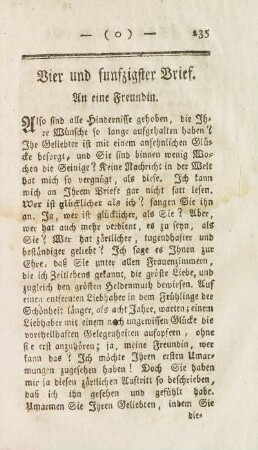 — ( o ) — 235
Vier und funfzigster Brief.
An eine Freundin.
Also sind alle Hindernisse gehoben, die Ih-
re Wünsche so lange aufgehalten haben?
Ihr Geliebter ist mit einem ansehnlichen Glü-
cke besorgt, und Sie sind binnen wenig Wo-
chen die Seinige? Keine Nachricht in der Welt
hat mich so vergnügt, als diese. Ich kann
mich an Ihrem Briefe gar nicht satt lesen.
Wer ist glücklicher als ich? fangen Sie ihn
an. Ja, wer ist glücklicher, als Sie? Aber,
wer hat auch mehr verdient, es zu seyn, als
Sie? Wer hat zärtlicher, tugendhafter und
beständiger geliebt? Ich sage es Ihnen zur
Ehre, daß Sie unter allen Frauenzimmern,
die ich Zeitlebens gekannt, die größte Liebe, und
zugleich den größten Heldenmuth bewiesen. Auf
einen entfernten Liebhaber in dem Frühlinge der
Schönheit länger, als acht Jahre, warten; einem
Liebhaber mit einem noch ungewissen Glücke die
vortheilhaften Gelegenheiten aufopfern, ohne
sie erst anzuhören; ja, meine Freundin, wer
kann das? Ich möchte Ihren ersten Umar-
mungen zugesehen haben! Doch Sie haben
mir ja diesen zärtlichen Auftritt so beschrieben,
daß ich ihn gesehen und gefühlt habe.
Umarmen Sie Ihren Geliebten, indem Sie
die-